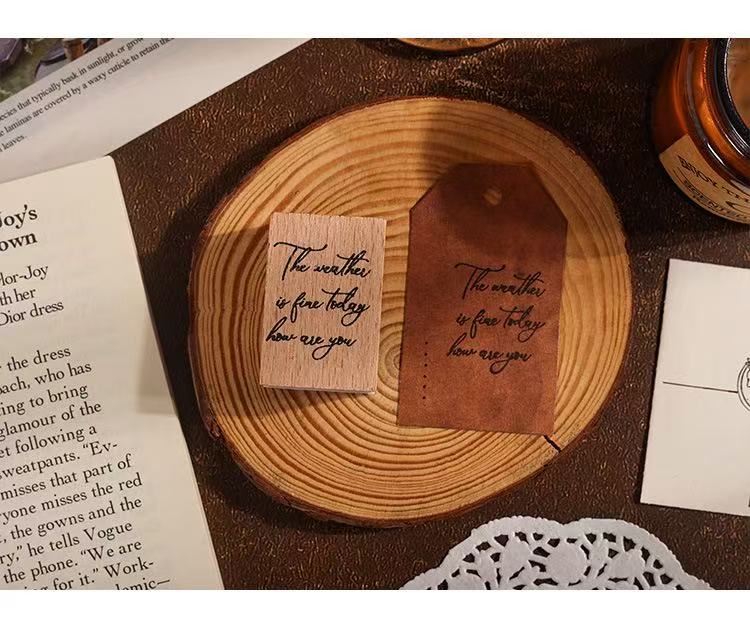 ecies that typically bask in sunlight, or grow
e laminas are covered by a waxy cuticle to retain the
leaves.
Joy's
own
lor-Joy
th her
Dior dress
the dress
oach, who has
ing to bring
glamour of the
et following a
sweatpants. “Ev-
misses that part of
yone misses the red
t, the gowns and the
ry,” he tells Vogue
the phone. “We are
ng for it.” Work-
demic—
The weather
is fine today
how are you
The weather
is fine today
how are you
ENJOY THE
SCENTED